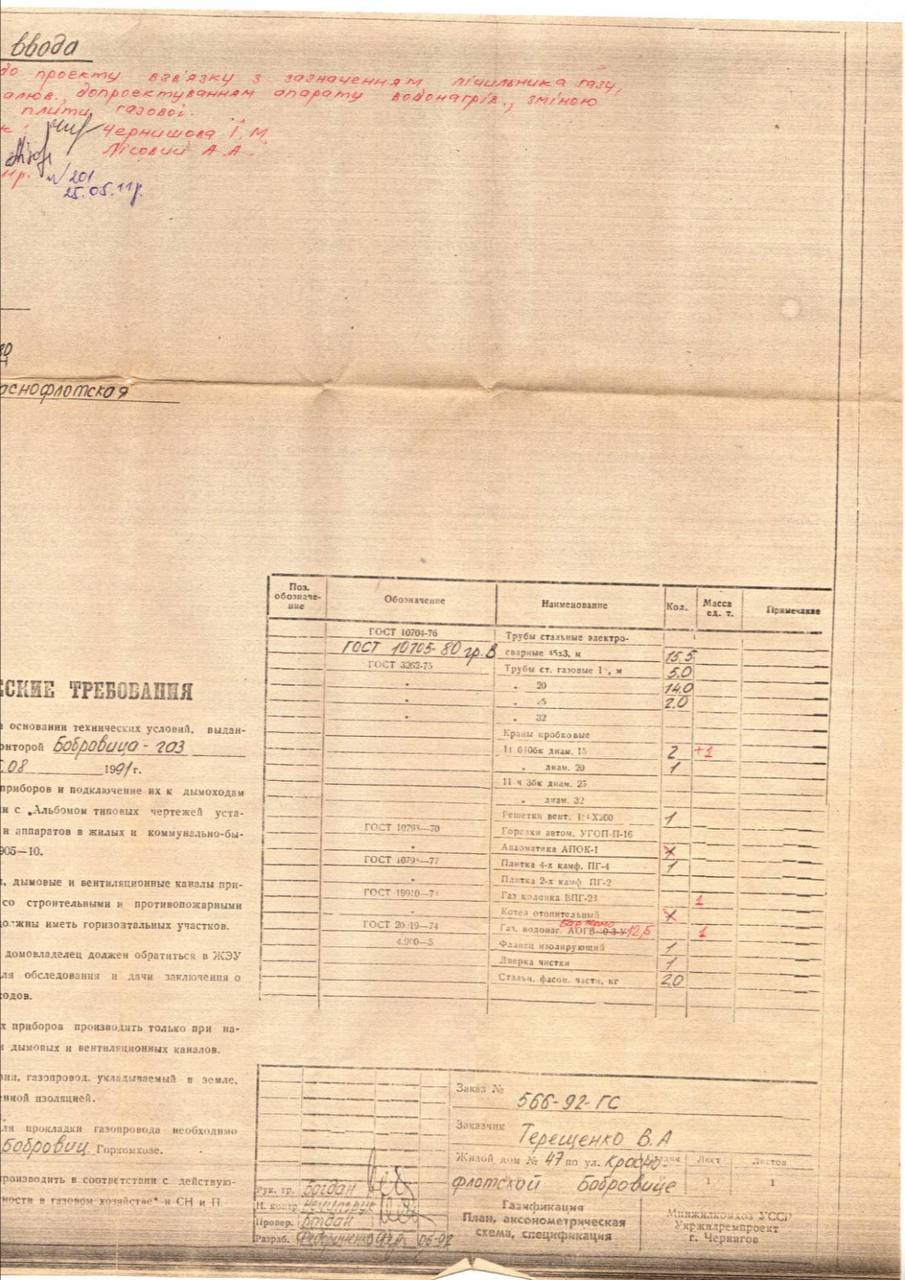 ввода
до проекту взв'язку з зазначенням лічильника газу,
допроектуванням апарату водонагрів., зміною
плити газової.
Чернишова І.М.
Лісовий А.А.
№201
25.05.11р.
аснофлотская
СКИЕ ТРЕБОВАНИЯ
основании технических условий, выдан-
онторой Бобровица-газ
.08 1991г.
приборов и подключение их к дымоходам
и с „Альбомом типовых чертежей уста-
и аппаратов в жилых и коммунально-бы-
905—10.
, дымовые и вентиляционные каналы при-
со строительными и противопожарными
должны иметь горизонтальных участков.
домовладелец должен обратиться в ЖЭУ
ля обследования и дачи заключения о
ходов.
х приборов производить только при на-
и дымовых и вентиляционных каналов.
газопровод, укладываемый в земле,
енной изоляцией.
ля прокладки газопровода необходимо
Бобровиц. Горкомхозе.
производить в соответствии с действую-
ности в газовом хозяйстве" и СН и П.
Поз. обозначе-ние Обозначение Наименование Кол. Масса ед. т. Примечание
ГОСТ 10704-76 Трубы стальные электро-
ГОСТ 10705-80 гр.В сварные 45х3, м 15.5
ГОСТ 3262-75 Трубы ст. газовые 15, м 5.0
" „ 20 14.0
" „ 25 2.0
" „ 32
Краны пробковые
11 б10бк диам. 15 2 +1
„ диам. 20 1
11 ч 3бк диам. 25
„ диам. 32
Решетки вент. 1
ГОСТ 10798—70 Горелки автом. УГОП-П-16
" Автоматика АПОК-1 х
ГОСТ 10798—77 Плитка 4-х камф. ПГ-4 1
" Плитка 2-х камф. ПГ-2
ГОСТ 19910—74 Газ колонка ВПГ-23 1
" Котел отопительный х
ГОСТ 20219—74 Газ. водонаг. АОГВ 12,5 1
4.900—5 Фланец изолирующий 1
Дверка чистки 1
Стальн. фасон. части, кг 20
Заказ № 566-92-ГС
Заказчик Терещенко В.А
Жилой дом № 47 по ул. Красно-
флотской Бобровице
Стадия Лист Листов
1 1
Рук. гр. Богдан
Н. контр.
Провер. Богдан
Разраб. 06-92
Газификация
План, аксонометрическая
схема, спецификация
Минжилкомхоз УССР
Укржилремпроект
г. Чернигов